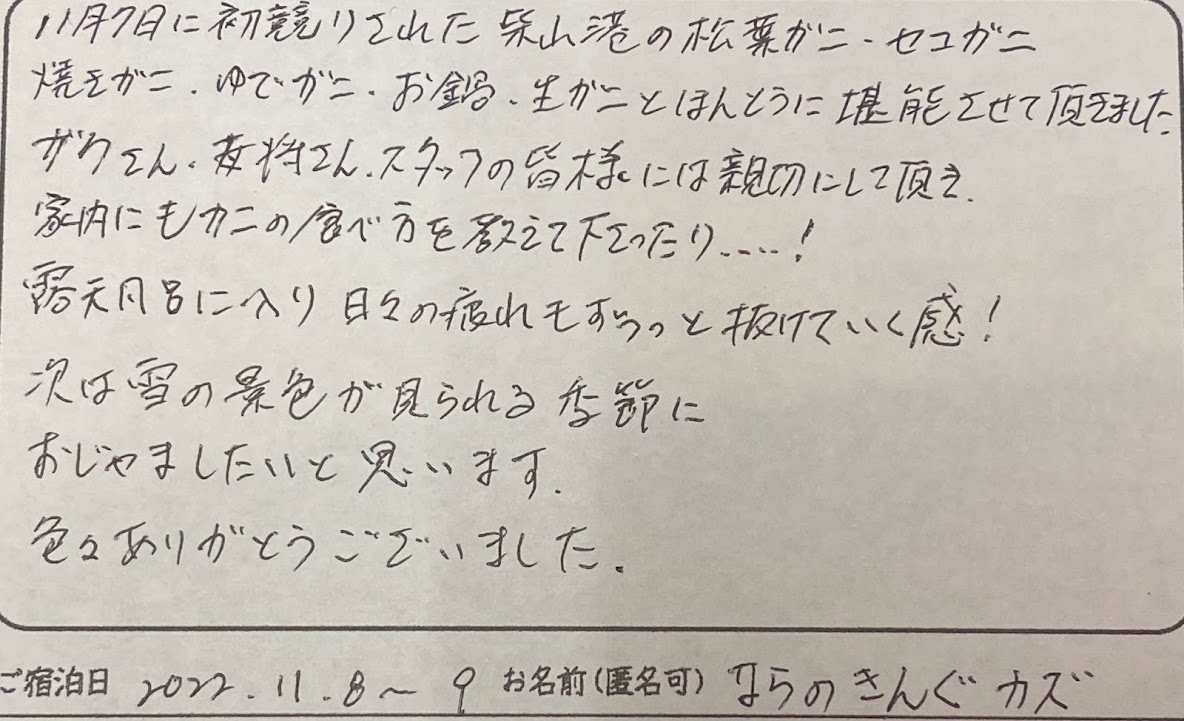 11月7日に初競りされた柴山港の松葉ガニ・セコガニ
焼きガニ、ゆでガニ、お鍋、生ガニとほんとうに堪能させて頂きました
ザクさん、女将さん、スタッフの皆様には親切にして頂き、
家内にもカニの食べ方を教えて下さったり.....!
露天風呂に入り日々の疲れもすうっと抜けていく感!
次は雪の景色が見られる季節に
おじゃましたいと思います.
色々ありがとうございました.
ご宿泊日 2022.11.8〜9 お名前(匿名可) ならのきんぐカズ